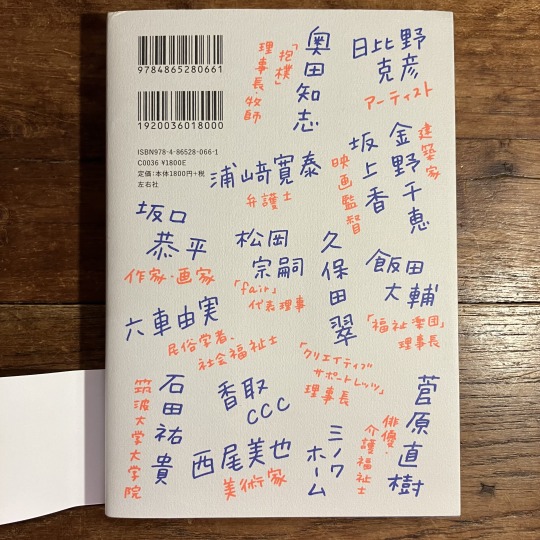 9784865280661
1920036018000
ISBN978-4-86528-066-1
C0036 ¥1800E
定価:本体1800円+税
左右社
日比野
克彦
アーティスト
奥田知志
「抱樸」
理事長・牧師
金野千恵
建築家
坂上香
映画監督
浦﨑寛泰
弁護士
坂口
恭平
作家・画家
松岡
宗嗣
「fair」
代表理事
久保田翠
「クリエイティブ
サポートレッツ」
理事長
飯田
大輔
「福祉楽団」
理事長
六車由実
民俗学者、
社会福祉士
石田祐貴
筑波大学大学院
香取
CCC
西尾美也
美術家
ミノワ
ホーム
菅原直樹
俳優・
介護福祉士